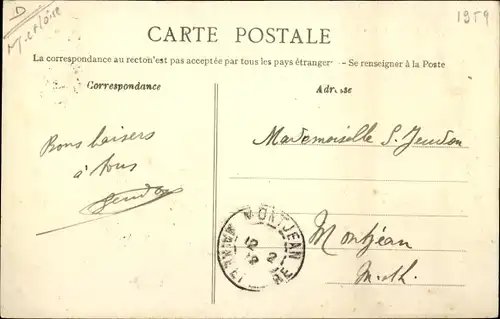 D
M-et-Loire
1959
CARTE POSTALE
La correspondance au recto n'est pas acceptée par tous les pays étranger - Se renseigner à la Poste
Correspondance
Adresse
Bons baisers
à tous
Mademoiselle S. Jeudon
Montjean
M-&-L.
MONTJEAN
MAINE-ET-LOIRE
12